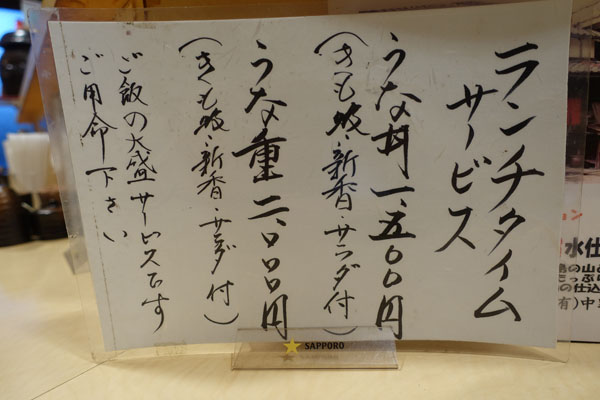 ランチタイム
サービス
うな丼 一、五〇〇円
(きも吸・新香・サラダ付)
うな重 二、〇〇〇円
(きも吸・新香・サラダ付)
ご飯の大盛サービスです
ご用命下さい
SAPPORO
水仕
の仕込